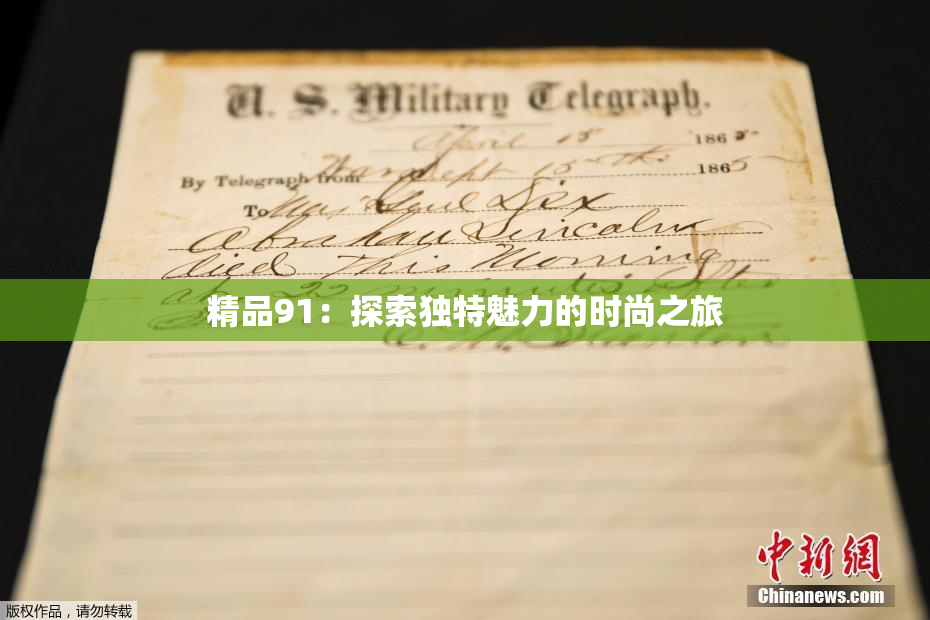 U. S. Military Telegraph.
April 15 1865
By Telegraph from War Dept 15th 1865
To Maj Genl Dix
Abraham Lincoln
died This Morning
at 22 minutes after
精品91：探索独特魅力的时尚之旅
E. M. Stanton
中新网
Chinanews.com
版权作品，请勿转载